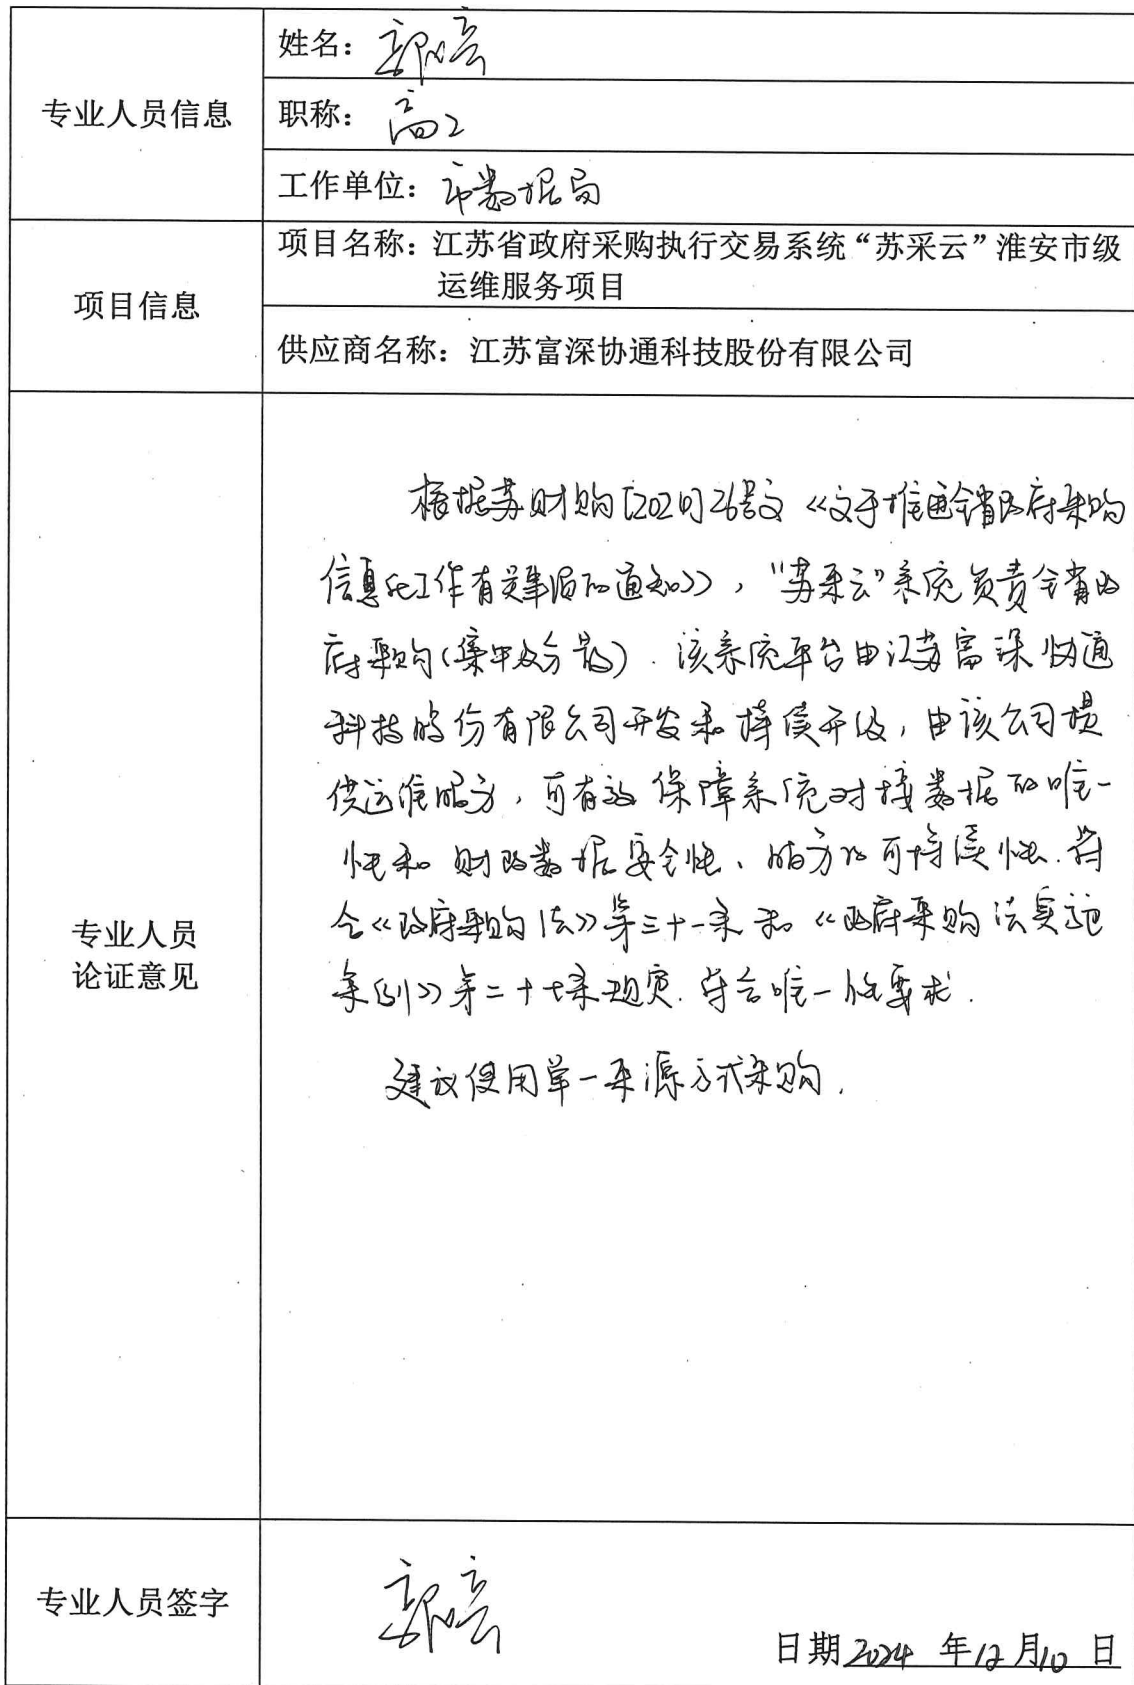 专业人员信息
姓名：
职称：高工
工作单位：市数据局
项目信息
项目名称：江苏省政府采购执行交易系统“苏采云”淮安市级
运维服务项目
供应商名称：江苏富深协通科技股份有限公司
专业人员
论证意见
根据苏财购[2021]26号文《关于推进全省政府采购
信息化工作有关事项的通知》，“苏采云”系统负责全省政
府采购(集中及分散).该系统平台由江苏富深协通
科技股份有限公司开发和持续升级，由该公司提
供运维服务，可有效保障系统对接数据的唯一
性和财政数据安全性、服务的可持续性.符
合《政府采购法》第三十一条和《政府采购法实施
条例》第二十七条规定.符合唯一性要求.
建议使用单一来源方式采购.
专业人员签字
日期2024年12月10日